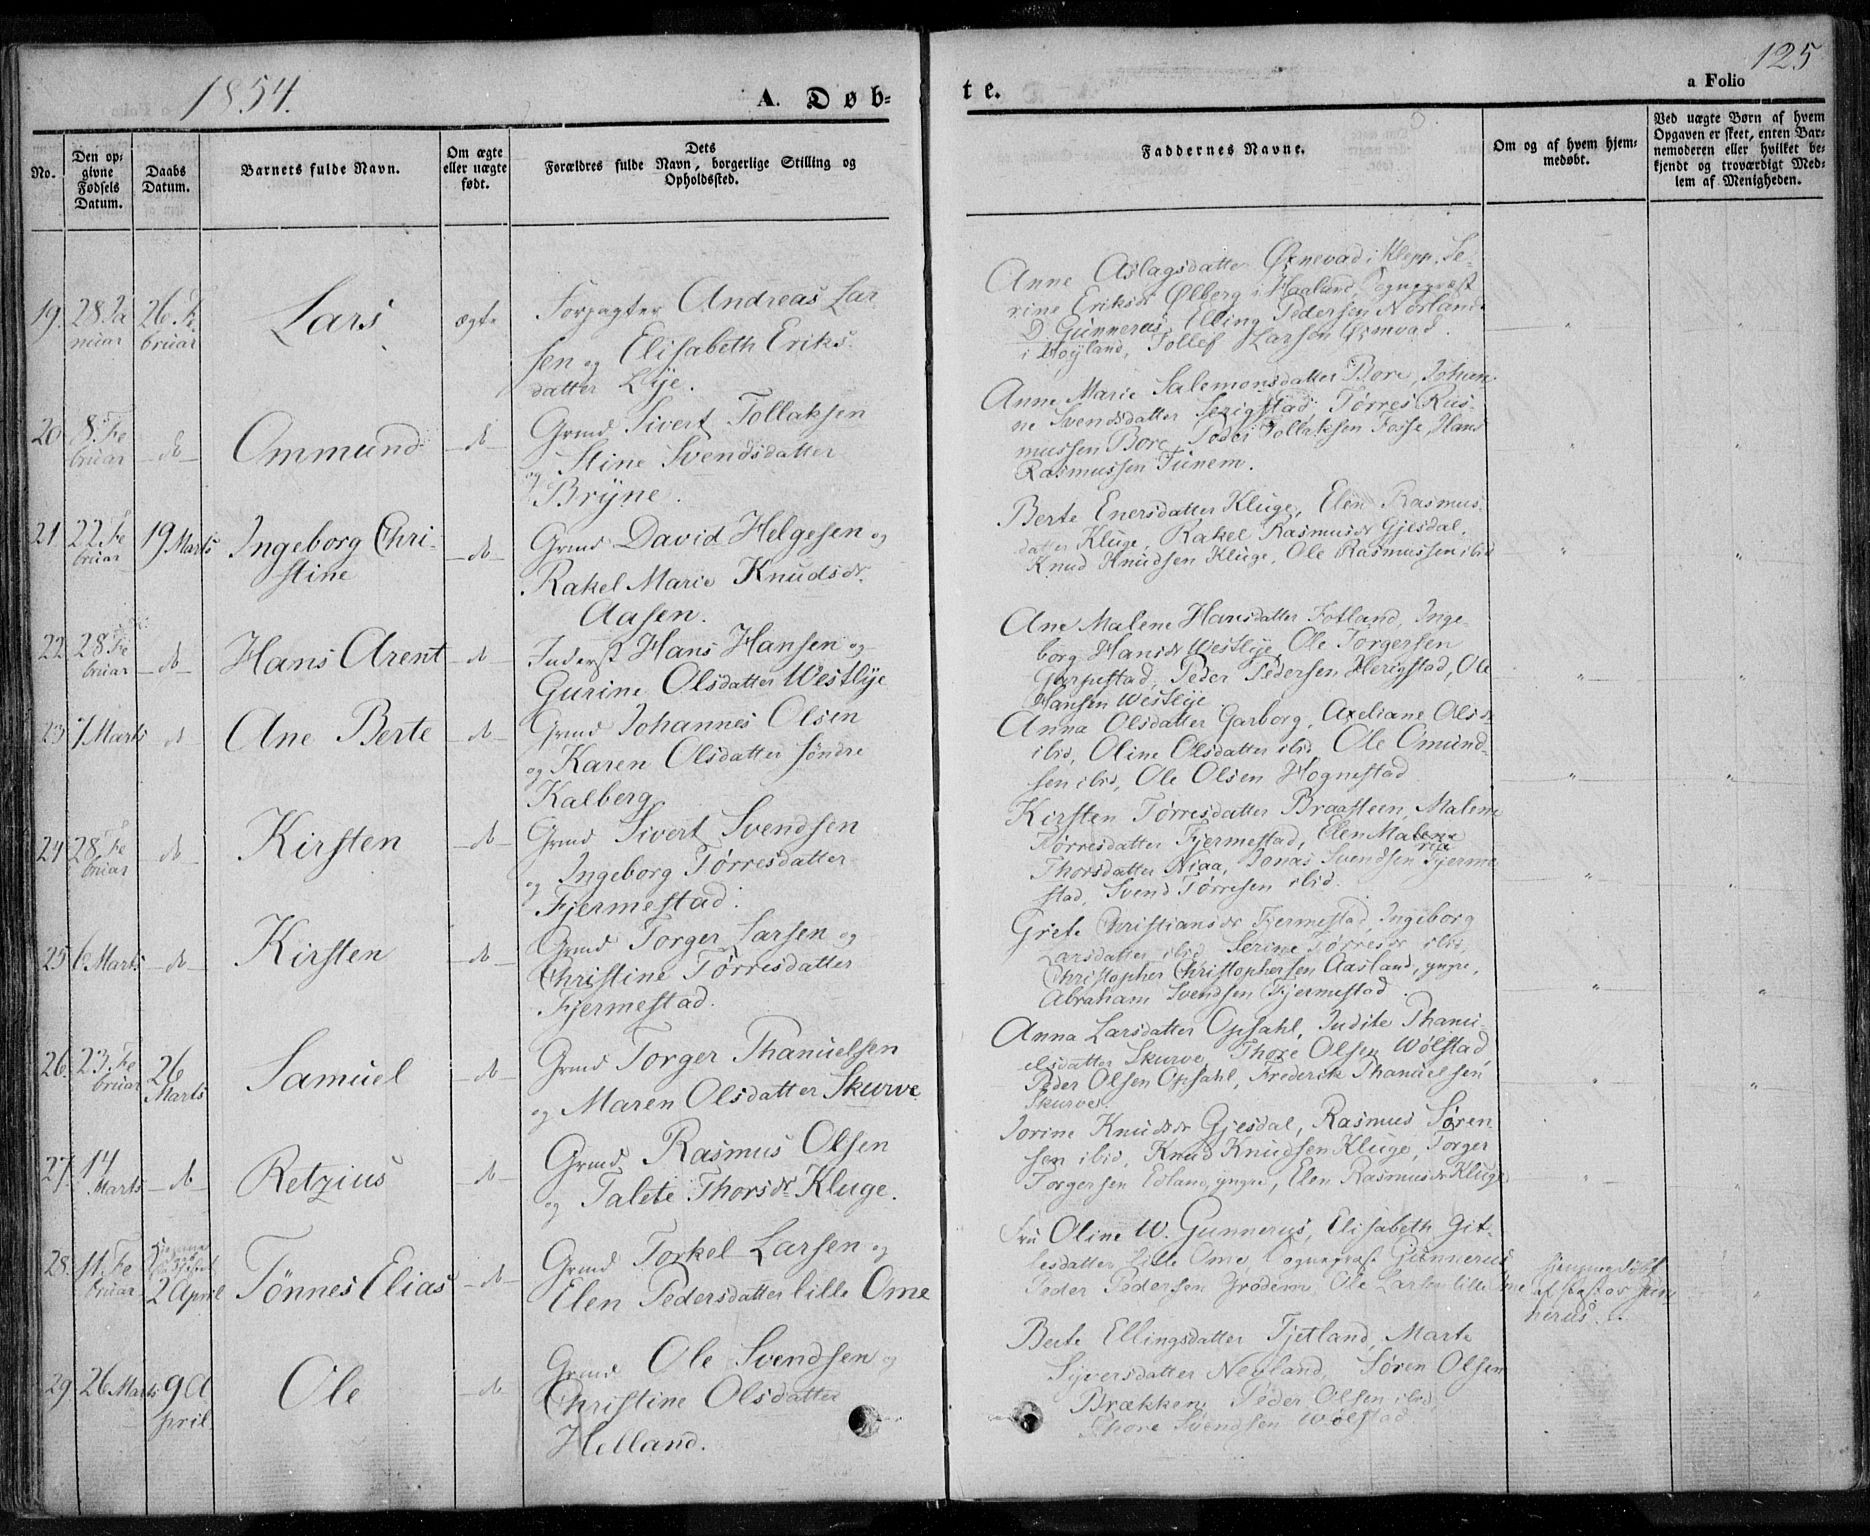 1854.
A. Døb-
te.
125
a Folio
No.
Den op-
givne
Fødsels
Datum.
Daabs
Datum.
Barnets fulde Navn.
Om ægte
eller uægte
født.
Dets
Forældres fulde Navn, borgerlige Stilling og
Opholdssted.
Faddernes Navne.
Om og af hvem hjem-
medøbt.
Ved uægte Børn af hvem
Opgaven er skeet, enten Bar-
nemoderen eller hvilket be-
kjendt og troværdigt Med-
lem af Menigheden.
19. 28. Ja
nuar
26. Fe
bruar
Lars
ægte
Forpagter Andreas Lar
sen og Elisabeth Eriks
datter Lye.
Anne Aslagsdatter Ørnevad i Klepp, Se-
rine Eriksdr Ølberg i Haaland, Sognepræst
D. Gunnerus, Elling Pedersen Norland
i Høyland, Tollef Larsen Ørnevad.
20. 8. Fe
bruar
do
Ommund
do
Grmd Sivert Tollaksen
og Stine Svendsdatter
Bryne.
Anne Marie Salemonsdatter Bore, Johan
ne Svendsdatter Serigstad, Tørres Ras-
mussen Bore, Tollaksen Fosse, Hans
Rasmussen Tunem.
21. 22. Fe
bruar
19 Marts
Ingeborg Chri-
stine
do
Grmd David Helgesen og
Rakel Marie Knudsdr.
Aasen.
Berte Enersdatter Kluge, Elen Rasmus-
datter Kluge, Rakel Rasmusdr Gjesdal,
Knud Knudsen Kluge, Ole Rasmussen ibid
22. 28 Fe
bruar
do
Hans Arent
do
Inderst Hans Hansen og
Gurine Olsdatter Westlye
Ane Malene Hansdatter Fotland, Inge
borg Hansdr Westlye, Ole Torgersen
Garpestad, Peder Pedersen Herigstad, Ole
Hansen Westlye
23. 7. Marts
do
Ane Berte
do
Grmd Johannes Olsen
og Karen Olsdatter søndre
Kalberg
Anna Olsdatter Garborg, Axeliane Olsdr
ibid, Oline Olsdatter ibid, Ole Omund-
sen ibid, Ole Olsen Hognestad
24. 28. Fe
bruar
do
Kirsten
do
Grmd Sivert Svendsen
og Ingeborg Tørresdatter
Fjermestad.
Kirsten Tørresdatter Braasteen, Malene
Tørresdatter Fjermestad, Elen Malena
ria
Thorsdatter Niaa, Jonas Svendsen Fjerme
stad, Svend Tørresen ibid.
25. 6. Marts
do
Kirsten
do
Grmd Torger Larsen og
Christine Tørresdatter
Fjermestad.
Grete Christiansdr Fjermestad, Ingeborg
Larsdatter ibid, Serine Tørresdr ibid,
Christopher Christophersen Aasland, yngre,
Abraham Svendsen Fjermestad.
26. 23. Fe
bruar
26
Marts
Samuel
do
Grmd Torger Thanuelsen
og Maren Olsdatter Skurve
Anna Larsdatter Opsahl, Judite Thanu-
elsdatter Skurve, Thore Olsen Wølstad,
Peder Olsen Opsahl, Frederik Thanuelsen
Skurve.
27. 14
Marts
do
Retzius
do
Grmd Rasmus Olsen
og Talete Thorsdr Kluge.
Jorine Knudsdr Gjesdal, Rasmus Søren
sen ibid, Knud Knudsen Kluge, Torger
Torgersen Edland, yngre, Elen Rasmusdr Kluge
28. 11. Fe
bruar
2 April
Tønnes Elias
do
Grmd Torkel Larsen og
Elen Pedersdatter lille Ome
Fru Oline W. Gunnerus, Elisabeth Git-
lesdatter lille Ome, Sognepræst Gunnerus,
Peder Pedersen Grødem, Ole Larsen lille Ome
hjemmedøbt
af Pastor Gun
nerus.
29. 26 Marts
9 A
pril
Ole
do
Grmd Ole Svendsen og
Christine Olsdatter
Helland.
Berte Ellingsdatter Tjetland, Marte
Syversdatter Neyland, Søren Olsen
Brækken, Peder Olsen ibid,
Thore Svendsen Wølstad